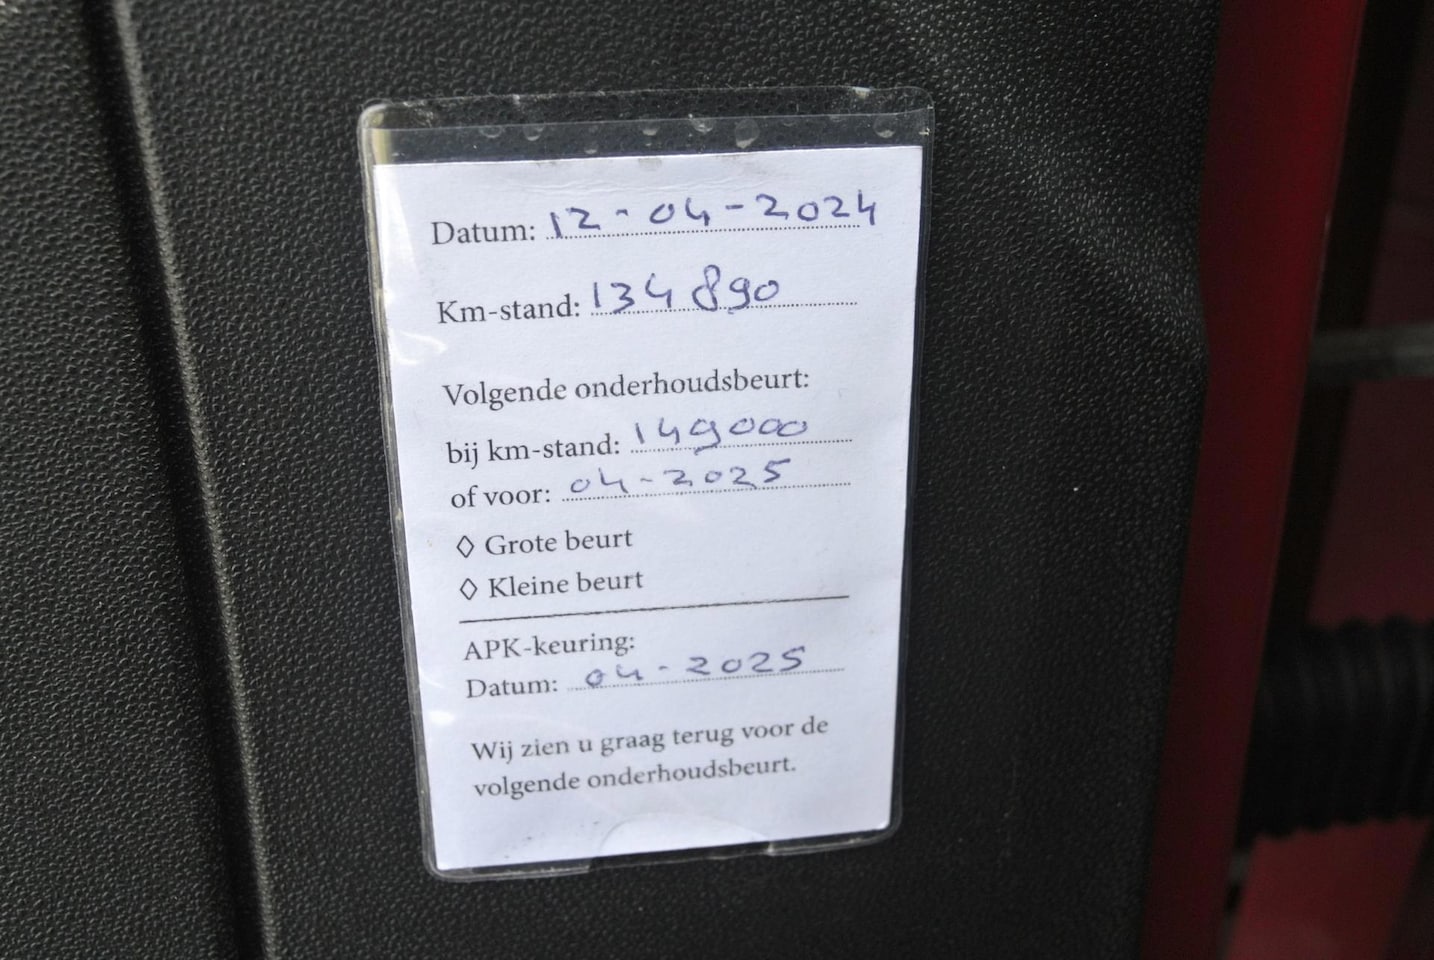 Datum: 12-04-2024
Km-stand: 134890
Volgende onderhoudsbeurt:
bij km-stand: 149000
of voor: 04-2025
◊ Grote beurt
◊ Kleine beurt
APK-keuring:
Datum: 04-2025
Wij zien u graag terug voor de
volgende onderhoudsbeurt.